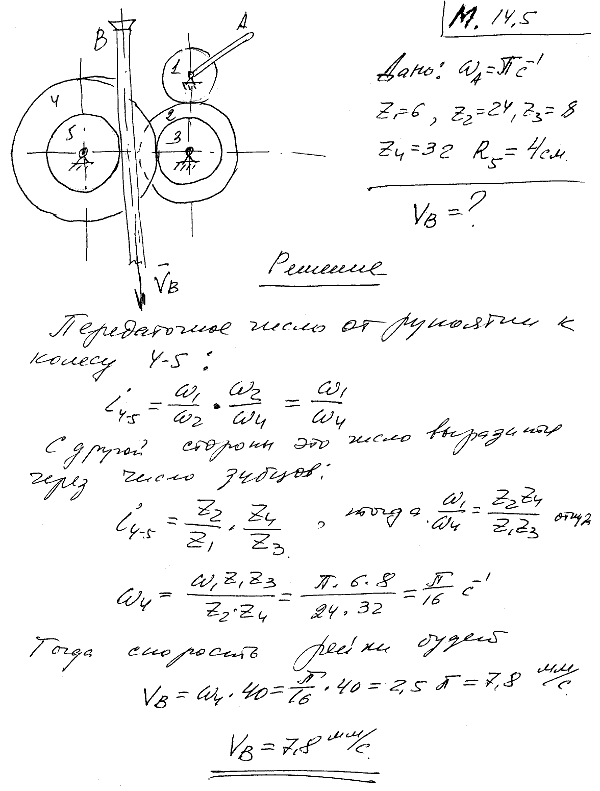 М. 14.5
A
B
1
2
3
4
5
V̄B
Дано: ωA = π c⁻¹
Z₁=6, Z₂=24, Z₃=8
Z₄=32 R₅=4см.
VB = ?
Решение
Передаточное число от рукоятки к
колесу 4-5:
i₄₋₅ = ω₁/ω₂ · ω₂/ω₄ = ω₁/ω₄
С другой стороны это число выразится
через число зубцов:
i₄₋₅ = Z₂/Z₁ · Z₄/Z₃, тогда ω₁/ω₄ = Z₂Z₄/Z₁Z₃
ω₄ = ω₁Z₁Z₃/Z₂·Z₄ = π·6·8/24·32 = π/16 c⁻¹
Тогда скорость рейки будет
VB = ω₄·40 = π/16·40 = 2,5 π = 7,8 мм/с.
VB = 7,8 мм/с.